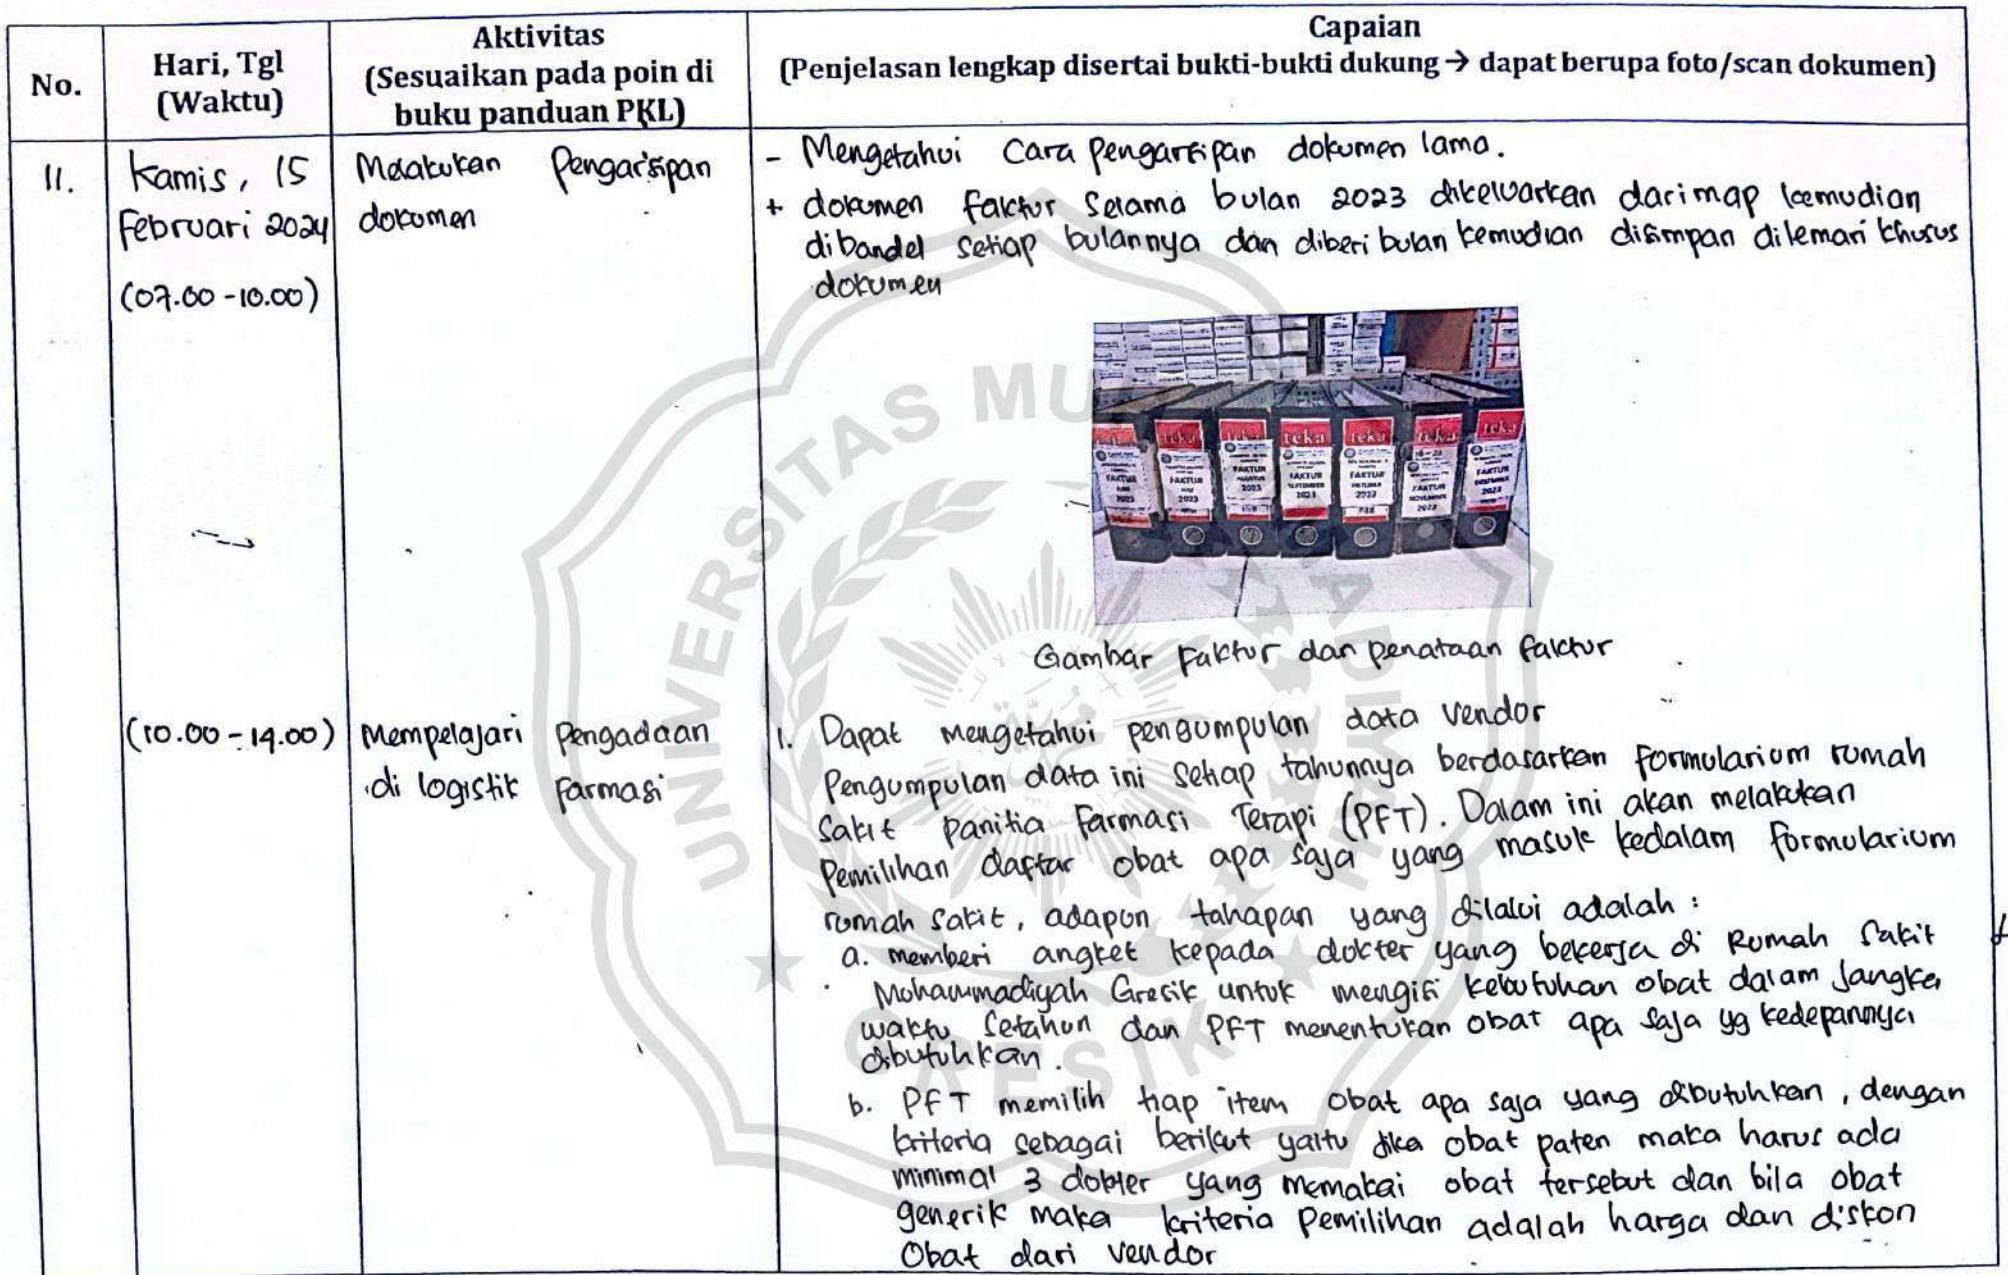 No.
Hari, Tgl
(Waktu)
Aktivitas
(Sesuaikan pada poin di
buku panduan PKL)
Capaian
(Penjelasan lengkap disertai bukti-bukti dukung → dapat berupa foto/scan dokumen)
11.
Kamis, 15
Februari 2024
(07.00 - 10.00)
Melakukan Pengarsipan
dokumen
- Mengetahui Cara pengarsipan dokumen lama.
+ dokumen faktur selama bulan 2023 dikeluarkan dari map kemudian
dibandel setiap bulannya dan diberi bulan kemudian disimpan dilemari khusus
dokumen
teka teka teka teka
FAKTUR
2023
FAKTUR
2023
FAKTUR
AGUSTUS
2023
FAKTUR
SEPTEMBER
2023
FAKTUR
OKTOBER
2023
16-23
FAKTUR
NOVEMBER
2023
FAKTUR
DESEMBER
2023
Gambar Faktur dan penataan faktur
(10.00 - 14.00)
Mempelajari Pengadaan
di logistik farmasi
1. Dapat mengetahui pengumpulan data vendor
Pengumpulan data ini setiap tahunnya berdasarkan formularium rumah
sakit panitia Farmasi Terapi (PFT). Dalam ini akan melakukan
Pemilihan daftar obat apa saja yang masuk kedalam formularium
rumah sakit, adapun tahapan yang dilalui adalah :
a. memberi angket kepada dokter yang bekerja di Rumah Sakit
Muhammadiyah Gresik untuk mengisi kebutuhan obat dalam jangka
waktu setahun dan PFT menentukan obat apa saja yg kedepannya
dibutuhkan.
b. PFT memilih tiap item obat apa saja yang dibutuhkan, dengan
kriteria sebagai berikut yaitu jika obat paten maka harus ada
minimal 3 dokter yang memakai obat tersebut dan bila obat
generik maka kriteria Pemilihan adalah harga dan diskon
Obat dari vendor
UNIVERSITAS MUHAMMADIYAH
GRESIK